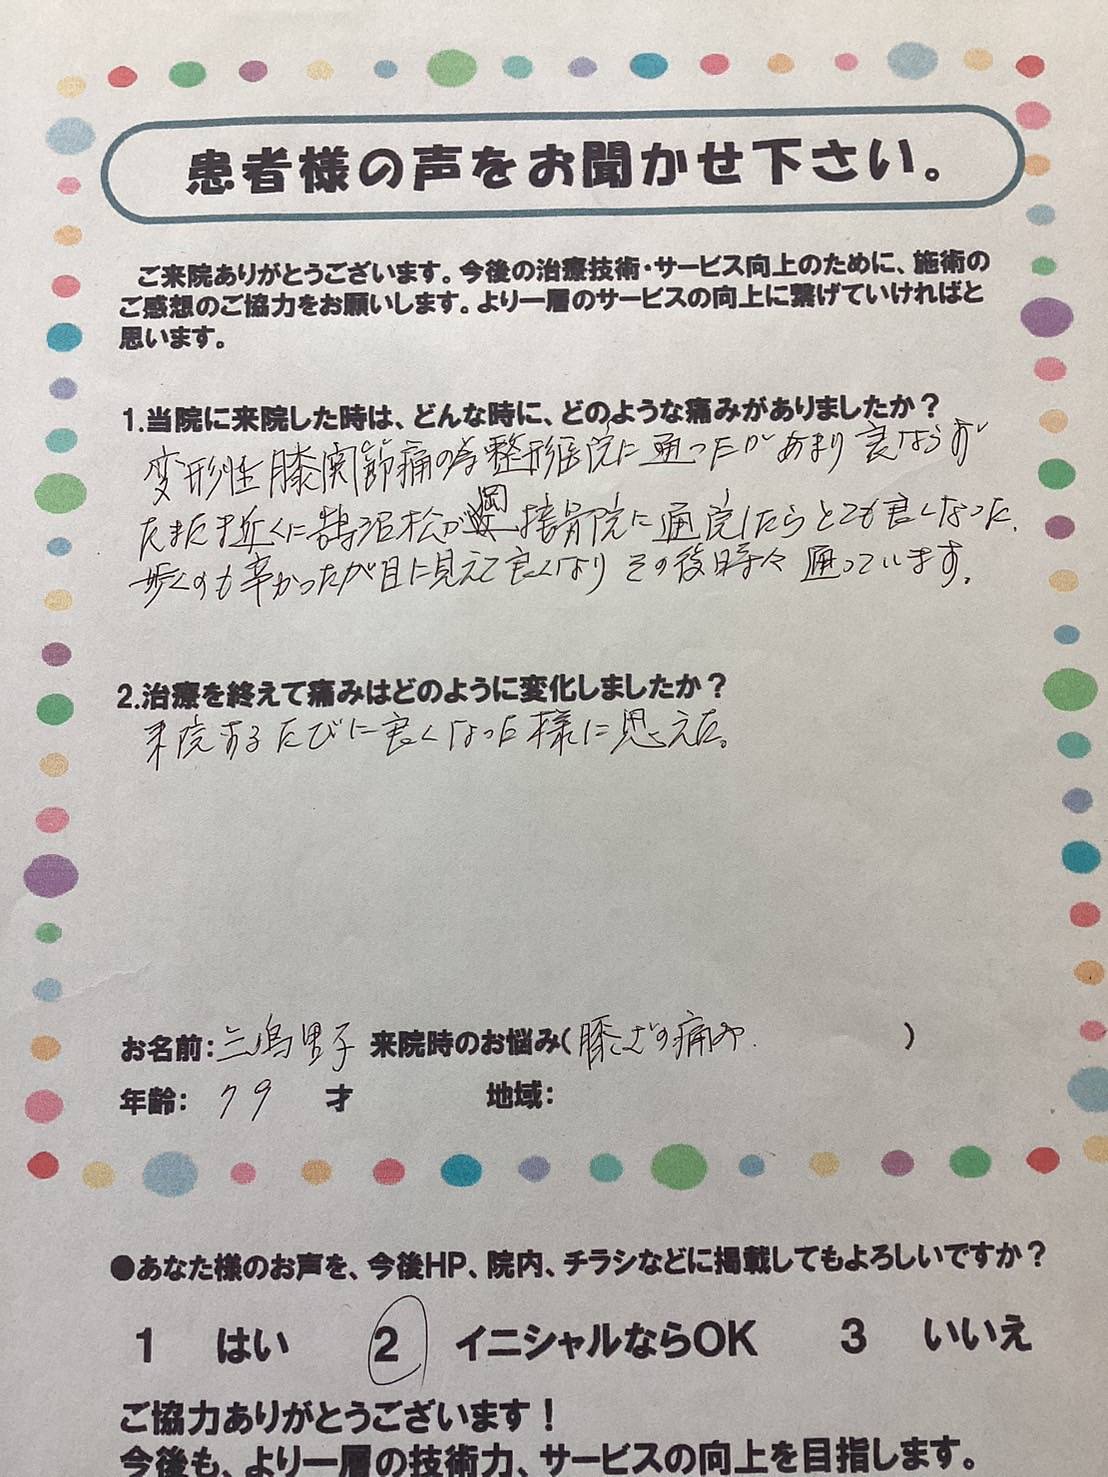 患者様の声をお聞かせ下さい。
ご来院ありがとうございます。今後の治療技術・サービス向上のために、施術の
ご感想のご協力をお願いします。より一層のサービスの向上に繋げていければと
思います。
1.当院に来院した時は、どんな時に、どのような痛みがありましたか？
変形性膝関節痛の為整形医院に通ったがあまり良ならず
たまたま近くに鵠沼松が岡接骨院に通院したらとても良くなった。
歩くのも辛かったが目に見えて良くなりその後時々通っています。
2.治療を終えて痛みはどのように変化しましたか？
来院するたびに良くなった様に思えた。
お名前:三嶋 子 来院時のお悩み(膝 の痛み. )
年齢: 79 才 地域:
●あなた様のお声を、今後HP、院内、チラシなどに掲載してもよろしいですか？
1 はい 2 イニシャルならOK 3 いいえ
ご協力ありがとうございます！
今後も、より一層の技術力、サービスの向上を目指します。